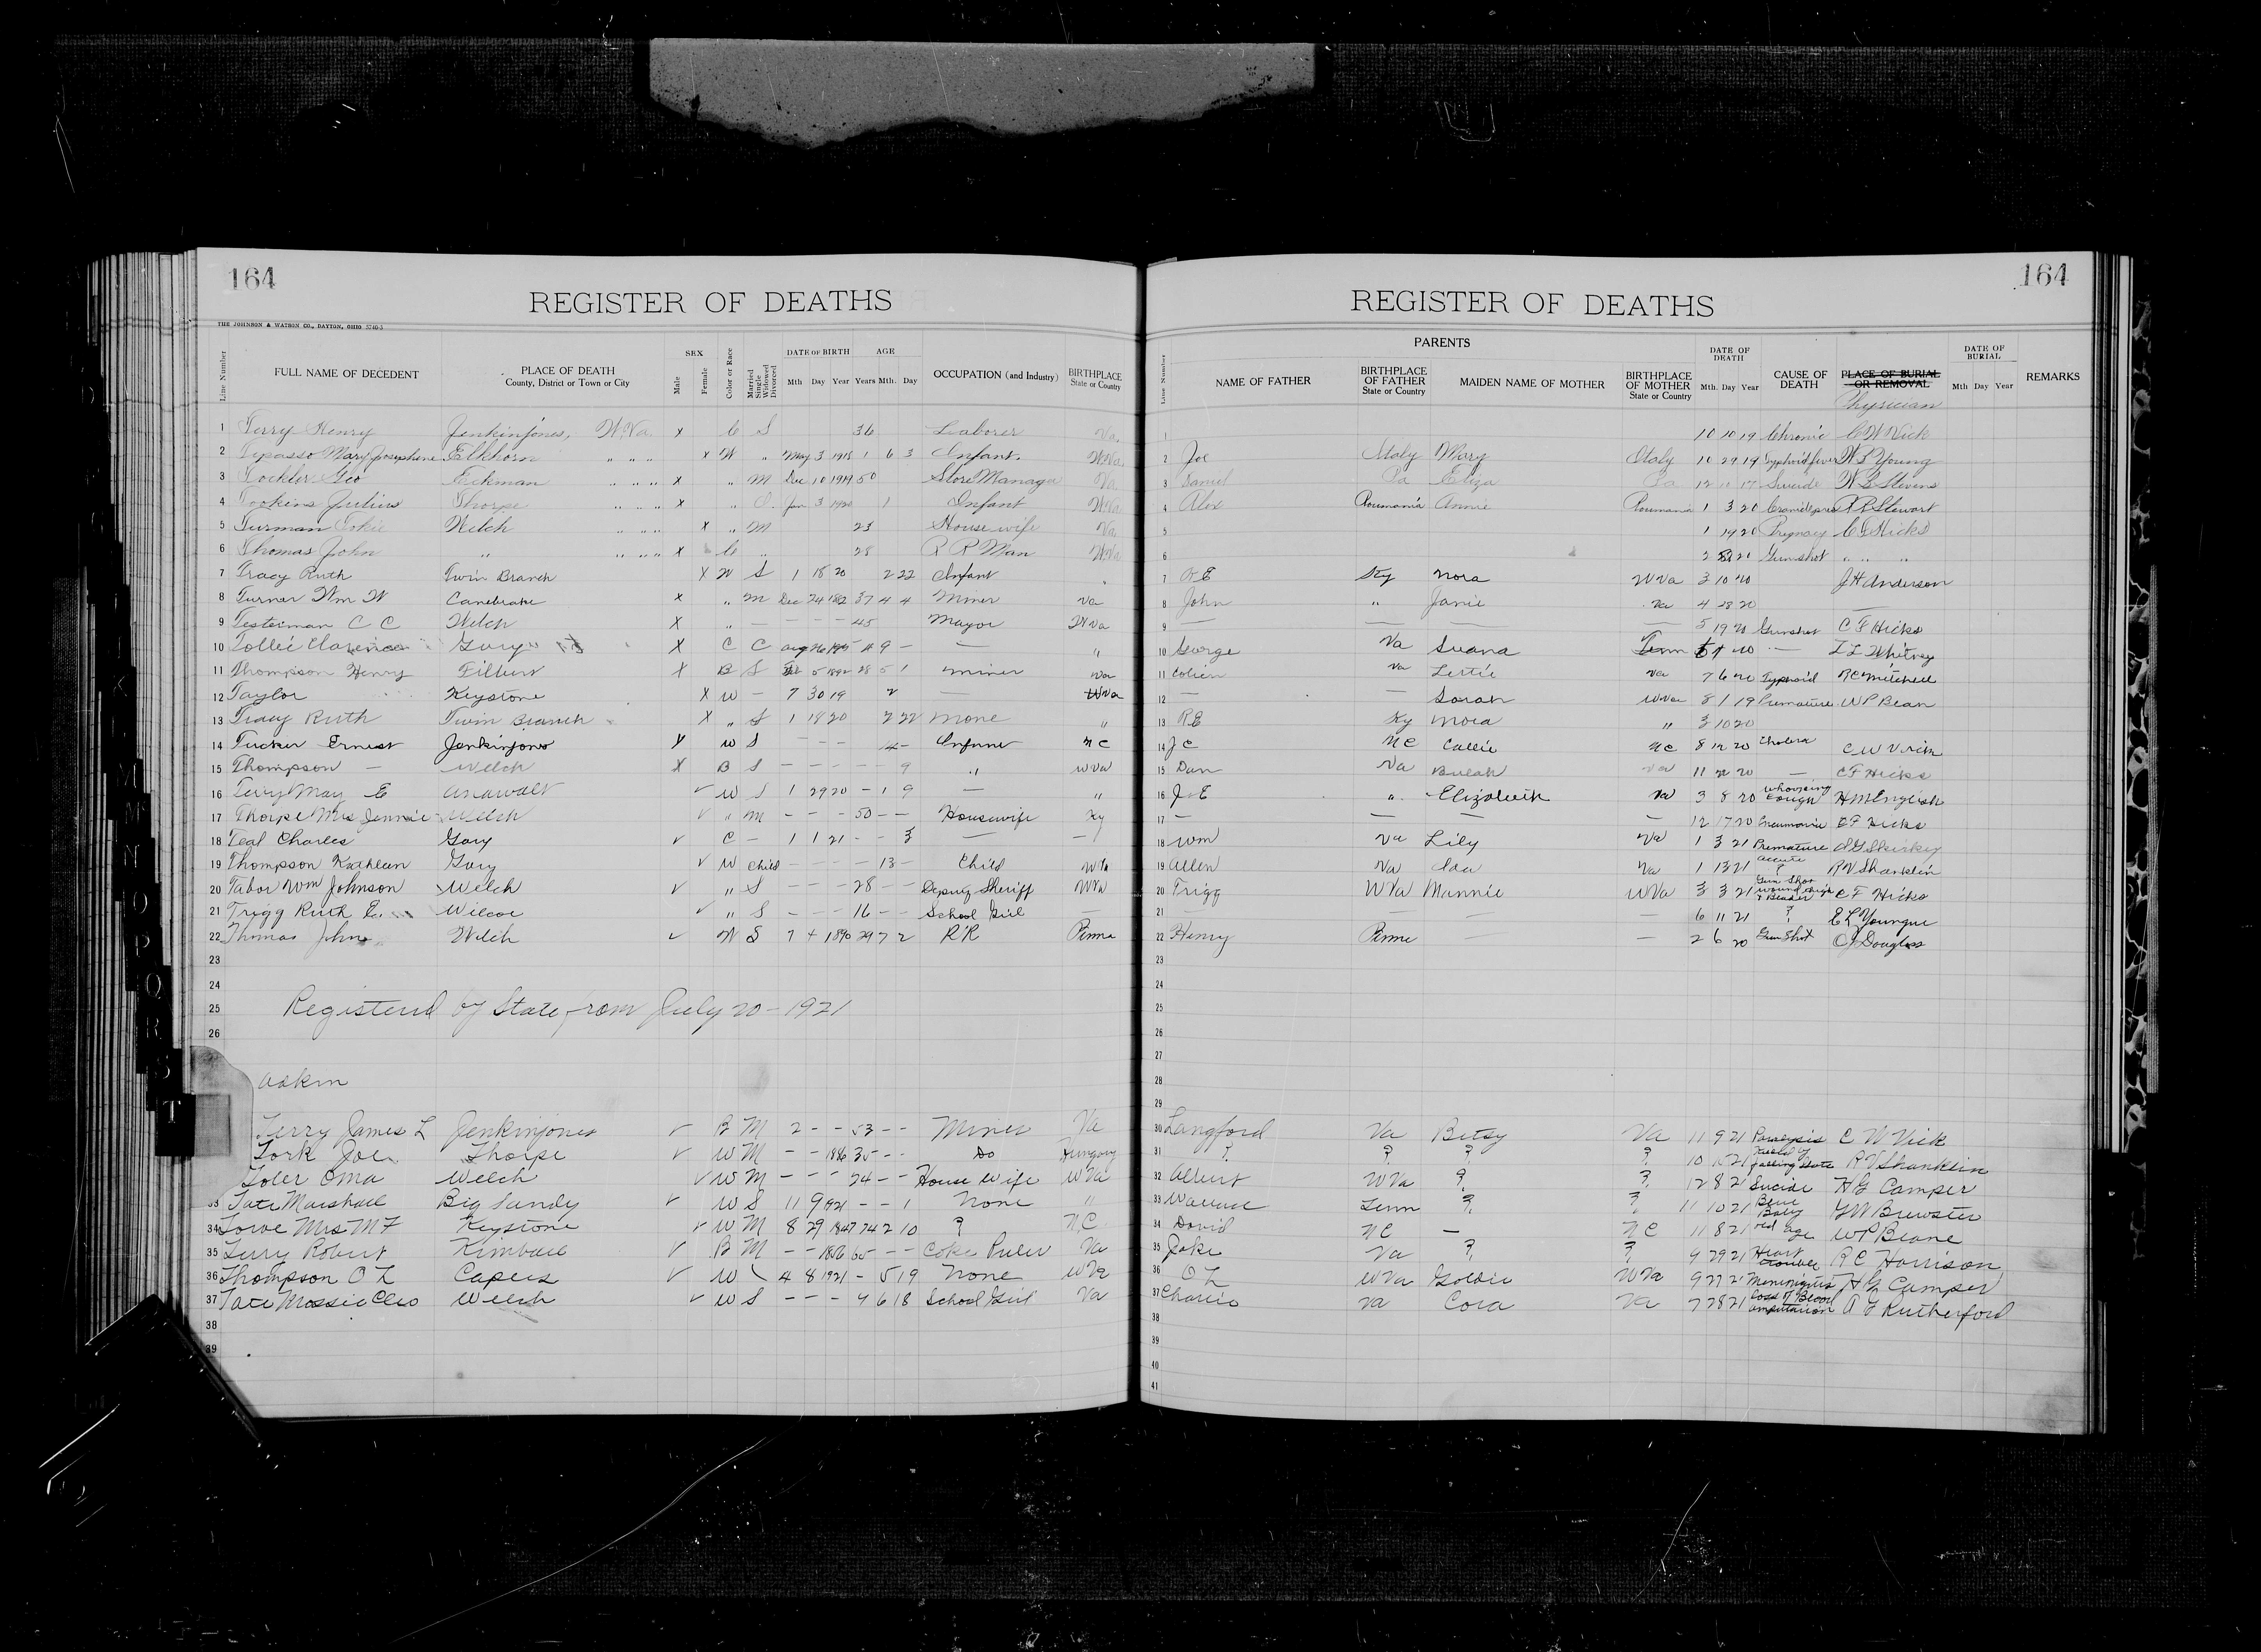 164
REGISTER OF DEATHS
THE JOHNSON & WATSON CO., DAYTON, OHIO 5740-3
Line Number FULL NAME OF DECEDENT PLACE OF DEATH County, District or Town or City SEX Male Female Color or Race Married Single Widowed Divorced DATE OF BIRTH Mth Day Year AGE Years Mth. Day OCCUPATION (and Industry) BIRTHPLACE State or Country
1 Terry Henry Jenkinjones, W.Va. x C S 36 Laborer Va.
2 Mary Josephine Elkhorn " " " x W " May 3 1918 1 6 3 Infant. W.Va.
3 Geo Eckman " " " x " M Dec 10 50 Store Manager Va
4 Julius Thorpe " " " x " Jan 3 1920 1 Infant W.Va
5 Turman Welch " " " x " M 23 House wife Va
6 Thomas John " " " " x C " 28 R R Man W.Va
7 Tracy Ruth Twin Branch X W S 1 18 20 2 22 Infant "
8 Turner Wm W Canebrake x " M Dec 24 1882 37 4 4 Miner Va
9 Testerman C C Welch X " — — — — 45 Mayor W Va
10 Tollie Clarence Gary X C C Aug 26 9 — — "
11 Thompson Henry Filbert X B S 5 1892 28 5 1 miner
12 Taylor Keystone X W — 7 30 19 2 — W Va
13 Tracy Ruth Twin Branch X " S 1 18 20 2 22 None "
14 Tucker Ernest Jenkinjones X W S — — — 4 — Infant N C
15 Thompson — Welch X B S — — — — — 9 " W Va
16 Terry May E Anawalt ✓ W S 1 29 20 — 1 9 — "
17 Thorpe Mrs Jennie Welch ✓ " M — — — 50 — — Housewife Ky
18 Teal Charles Gary ✓ C — 1 1 21 — — 3 — —
19 Thompson Kathleen Gary ✓ W Child — — — — 13 — Child W Va
20 Tabor Wm Johnson Welch ✓ " S — — — 28 — — Deputy Sheriff W Va
21 Trigg Ruth E. Wilcoe ✓ " S — — — 16 — — School Girl —
22 Thomas John Welch ✓ W S 7 4 1890 29 7 2 R R Penna
23
24
25 Registered by State from July 20 - 1921
26
Terry James L Jenkinjones ✓ B M 2 - - 53 - - Miner Va
Tork Joe Thorpe ✓ W M - - 1886 35 - - Do Hungary
Toler Oma Welch ✓ W M - - - 24 - - House Wife W Va
33 Tate Marshall Big Sandy ✓ W S 11 9 1921 - - 1 None "
34 Mrs M F Keystone ✓ W M 8 29 1847 74 2 10 ? N C
35 Terry Robert Kimball ✓ B M - - 1856 65 - - Coke Puller Va
36 Thompson O L Capels ✓ W 4 8 1921 - 5 19 None W Va
37 Tate Mossie Cleo Welch ✓ W S - - - 9 6 18 School Girl Va
38
39
164
REGISTER OF DEATHS
Line Number PARENTS NAME OF FATHER BIRTHPLACE OF FATHER State or Country MAIDEN NAME OF MOTHER BIRTHPLACE OF MOTHER State or Country DATE OF DEATH Mth. Day Year CAUSE OF DEATH PLACE OF BURIAL OR REMOVAL Physician DATE OF BURIAL Mth Day Year REMARKS
1 10 10 19 Chronic C W Vick
2 Joe Italy Mary Italy 10 29 19 Typhoid fever W P Young
3 Daniel Pa Eliza Pa 12 11 17 Suicide W B Stevens
4 Alex Roumania Annie Roumania 1 3 20 Stewart
5 1 19 20 C F Hicks
6 2 21 Gunshot " " "
7 R E Ky Nora W Va 3 10 20 J H Anderson
8 John " Janie Va 4 28 20 —
9 — — — — 5 19 20 Gunshot C F Hicks
10 George Va Susana Tenn — Whitney
11 Va Lettie Va 7 6 20 Typhoid R C Mitchell
12 — — Sarah W Va 8 1 19 Premature W P Bean
13 R E Ky Nora " 3 10 20
14 J C N C Callie N C 8 12 20 Cholera C W Vick
15 Dan Va Bulah Va 11 22 20 — C F Hicks
16 J E " Elizabeth Va 3 8 20 Whooping Cough H M English
17 — — — — 12 17 20 Pneumonia C F Hicks
18 Wm Va Lily Va 1 3 21 Premature
19 Allen Va Ida Va 1 13 21 Acute ? R V Shanklin
20 Trigg W Va Minnie W Va 3 3 21 Gun Shot wound C F Hicks
21 — — — — 6 11 21 ? E L Youngue
22 Henry Penna — — 2 6 20 Gun Shot O J Douglass
23
24
25
26
27
28
29
30 Langford Va Betsy Va 11 9 21 Paralysis C W Vick
31 ? ? ? ? 10 21 Killed by falling slate R V Shanklin
32 Albert W Va ? ? 12 8 21 Suicide H G Camper
33 Wallace Tenn ? ? 11 10 21 Blue Baby G W Brewster
34 David N C — N C 11 8 21 Old age W P Beane
35 Jake Va ? ? 9 29 21 Heart trouble R C Harrison
36 O L W Va Goldie W Va 9 27 21 Meningitis H G Camper
37 Charlie Va Cora Va 7 28 21 Loss of Blood amputation A G Rutherford
38
39
40
41